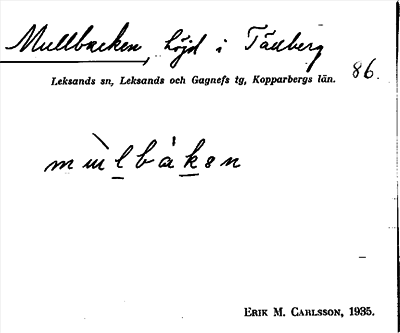 Mullbacken, höjd i Tädberg
Leksands sn, Leksands och Gagnefs tg, Kopparbergs län. 86.
ERIK M. CARLSSON, 1935.